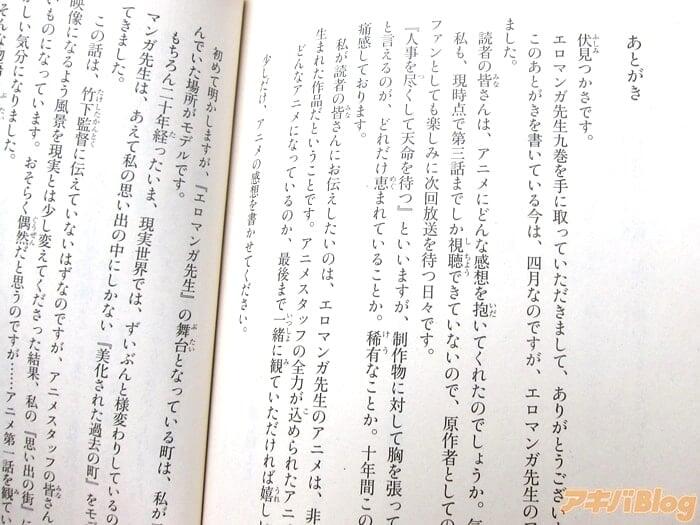 あとがき
伏見つかさです。
エロマンガ先生九巻を手に取っていただきまして、ありがとうござい
このあとがきを書いている今は、四月なのですが、エロマンガ先生のア
ました。
読者の皆さんは、アニメにどんな感想を抱いてくれたのでしょうか。気
私も、現時点で第三話までしか視聴できていないので、原作者としての
ファンとしても楽しみに次回放送を待つ日々です。
『人事を尽くして天命を待つ』といいますが、制作物に対して胸を張って
と言えるのが、どれだけ恵まれていることか。稀有なことか。十年間この
痛感しております。
私が読者の皆さんにお伝えしたいのは、エロマンガ先生のアニメは、非
生まれた作品だということです。アニメスタッフの全力が込められたアニ
どんなアニメになっているのか、最後まで一緒に観ていただければ嬉し
少しだけ、アニメの感想を書かせてください。
初めて明かしますが、『エロマンガ先生』の舞台となっている町は、私が
んでいた場所がモデルです。
もちろん二十年経ったいま、現実世界では、ずいぶんと様変わりしているの
マンガ先生は、あえて私の思い出の中にしかない『美化された過去の町』をモデ
てきました。
この話は、竹下監督に伝えていないはずなのですが、アニメスタッフの皆さん
映像になるよう風景を現実とは少し変えてくださった結果、私の『思い出の街』に
いものになっています。おそらく偶然だと思うのですが……アニメ第一話を観てい
しい気分になりました。
アキバBlog